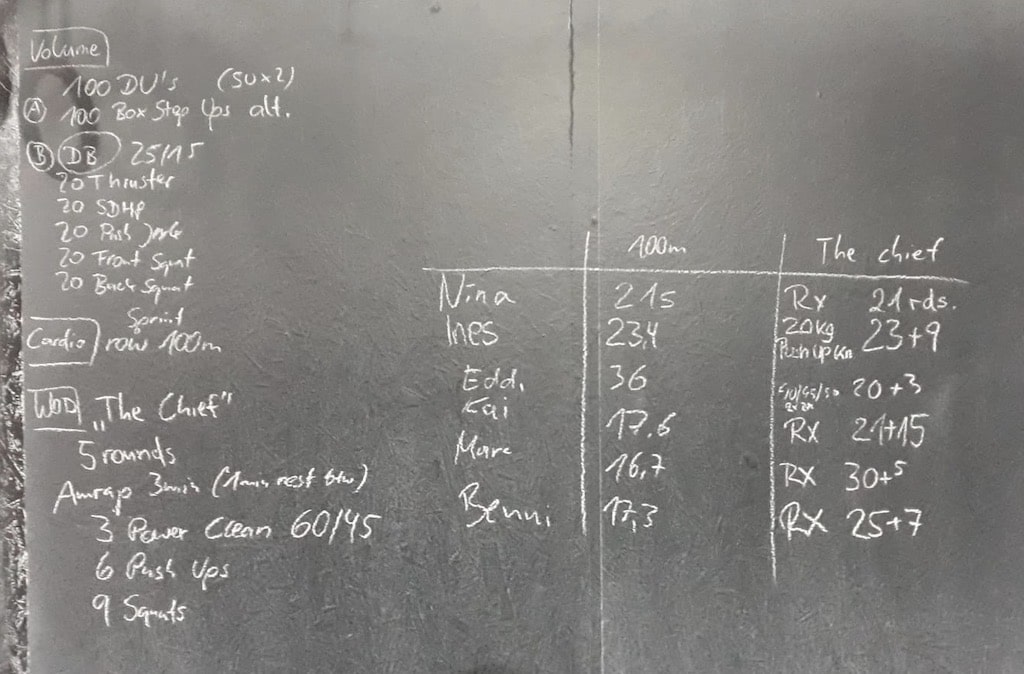 Volume
100 DU's (SU×2)
A 100 Box Step Ups alt.
B DB 25/15
20 Thruster
20 SDHP
20 Push
20 Front Squat
20 Back Squat
Sprint
Cardio row 100m
WOD „The Chief"
5 rounds
Amrap 3min (1min rest btw)
3 Power Clean 60/45
6 Push Ups
9 Squats
100m The chief
Nina 21s Rx 21 rds.
Ines 23,4 20kg 23+9
Push Up Kn
Eddi 36 20+3
Kai 17.6 RX 21+15
Marc 16,7 RX 30+5
Benni 17,3 RX 25+7